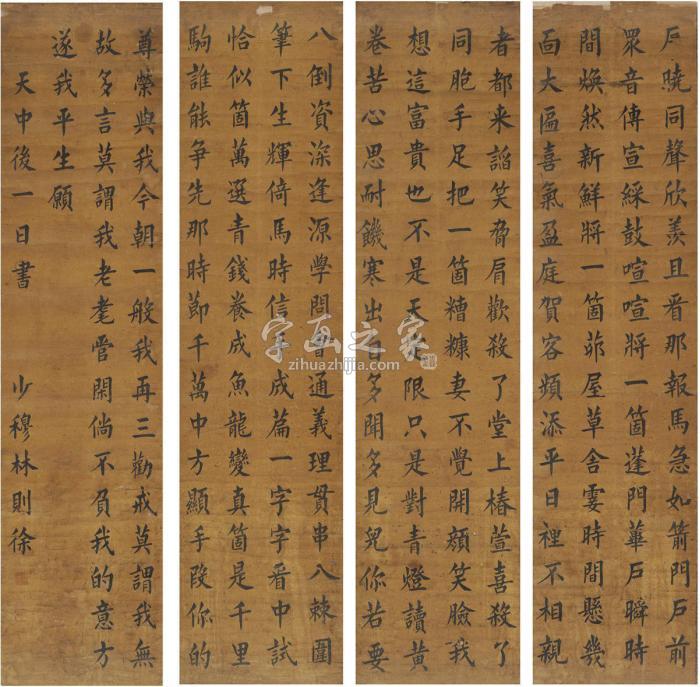 戶曉同聲欣羨且看那報馬急如箭門戶前
眾音傳宣綵鼓喧喧將一箇蓬門蓽戶瞬時
間煥然新鮮將一箇茆屋草舍霎時間懸幾
面大匾喜氣盈庭賀客頻添平日裡不相親
者都来諂笑脅肩歡殺了堂上椿萱喜殺了
同胞手足把一箇糟糠妻不覺開顏笑臉我
想這富貴也不是天 限只是對青燈讀黃
卷苦心思耐饑寒出 多聞多見兒你若要
八倒資深逢源學問 通義理貫串八棘圍
筆下生輝倚馬時信手成篇一字字看中試
恰似箇萬選青錢養成魚龍變真箇是千里
駒誰能争先那時節千萬中方顯手段你的
尊榮與我今朝一般我再三勸戒莫謂我無
故多言莫謂我老耄管閑倘不負我的意方
遂我平生願
天中後一日書 少穆林則徐
字画之家
zihuazhijia.com